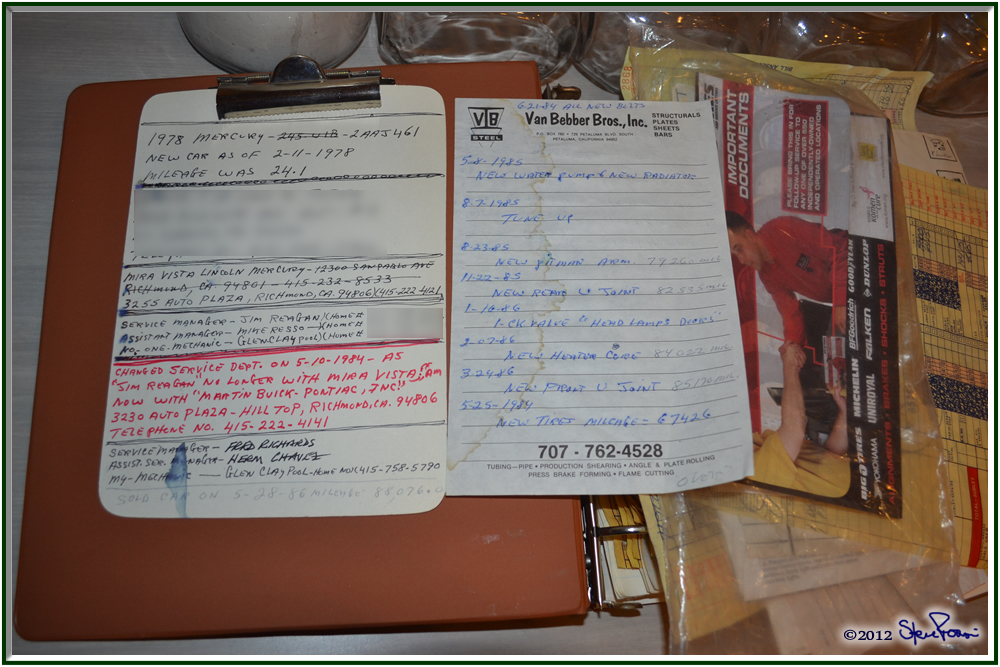 1978 MERCURY - 245 UIB - 2AAJ461
NEW CAR AS OF 2-11-1978
MILEAGE WAS 24.1
MIRA VISTA LINCOLN MERCURY - 12300 SAN PABLO AVE
RICHMOND, CA 94801 - 415-232-8533
3255 AUTO PLAZA, RICHMOND, CA. 94806)(415-222-4121
SERVICE MANAGER - JIM REAGAN)(HOME#
ASSISTANT MANAGER - MIKE RESSO -)(HOME#
NO. ONE-MECHANIC - GLEN CLAYPOOL)(HOME#
CHANGED SERVICE DEPT. ON 5-10-1984 - AS
"JIM REAGAN" NO LONGER WITH MIRA VISTA, I AM
NOW WITH "MARTIN BUICK - PONTIAC, INC!"
3230 AUTO PLAZA - HILL TOP, RICHMOND, CA. 94806
TELEPHONE NO. 415-222-4141
SERVICE MANAGER - FRED RICHARDS
ASSIST. SER. MANAGER - HERM CHAVEZ
MY-MECHANIC GLEN CLAYPOOL-HOME NO(415-758-5790
SOLD CAR ON 5-28-86 MILEAGE 88,076.
6-21-84 ALL NEW BELTS
VTB
STEEL
Van Bebber Bros., Inc.
P.O. BOX 760 • 729 PETALUMA BLVD. SOUTH
PETALUMA, CALIFORNIA 94952
STRUCTURALS
PLATES
SHEETS
BARS
5-8-1985
NEW WATER PUMP & NEW RADIATOR
8-7-1985
TUNE UP
8-23-85
NEW PITMAN ARM. 79260
11-22-85
NEW REAR U JOINT 82535 MIL
1-10-86
1-CK. VALVE "HEAD LAMPS DOORS"
2-07-86
NEW HEATER CORE 84023
3-24-86
NEW FRONT U JOINT 85170
5-25-1984
NEW TIRES MILEAGE - 67426
707 - 762-4528
TUBING—PIPE • PRODUCTION SHEARING • ANGLE & PLATE ROLLING
PRESS BRAKE FORMING • FLAME CUTTING
OVER
IMPORTANT
DOCUMENTS
PLEASE BRING THIS IN FOR
FOLLOW UP SERVICE TO
ANY ONE OF OVER 350
INDEPENDENTLY-OWNED
AND OPERATED LOCATIONS
BIG O TIRES MICHELIN BFGoodrich GOODYEAR
YOKOHAMA UNIROYAL FALKEN DUNLOP
ALIGNMENTS • BRAKES • SHOCKS • STRUTS
©2012